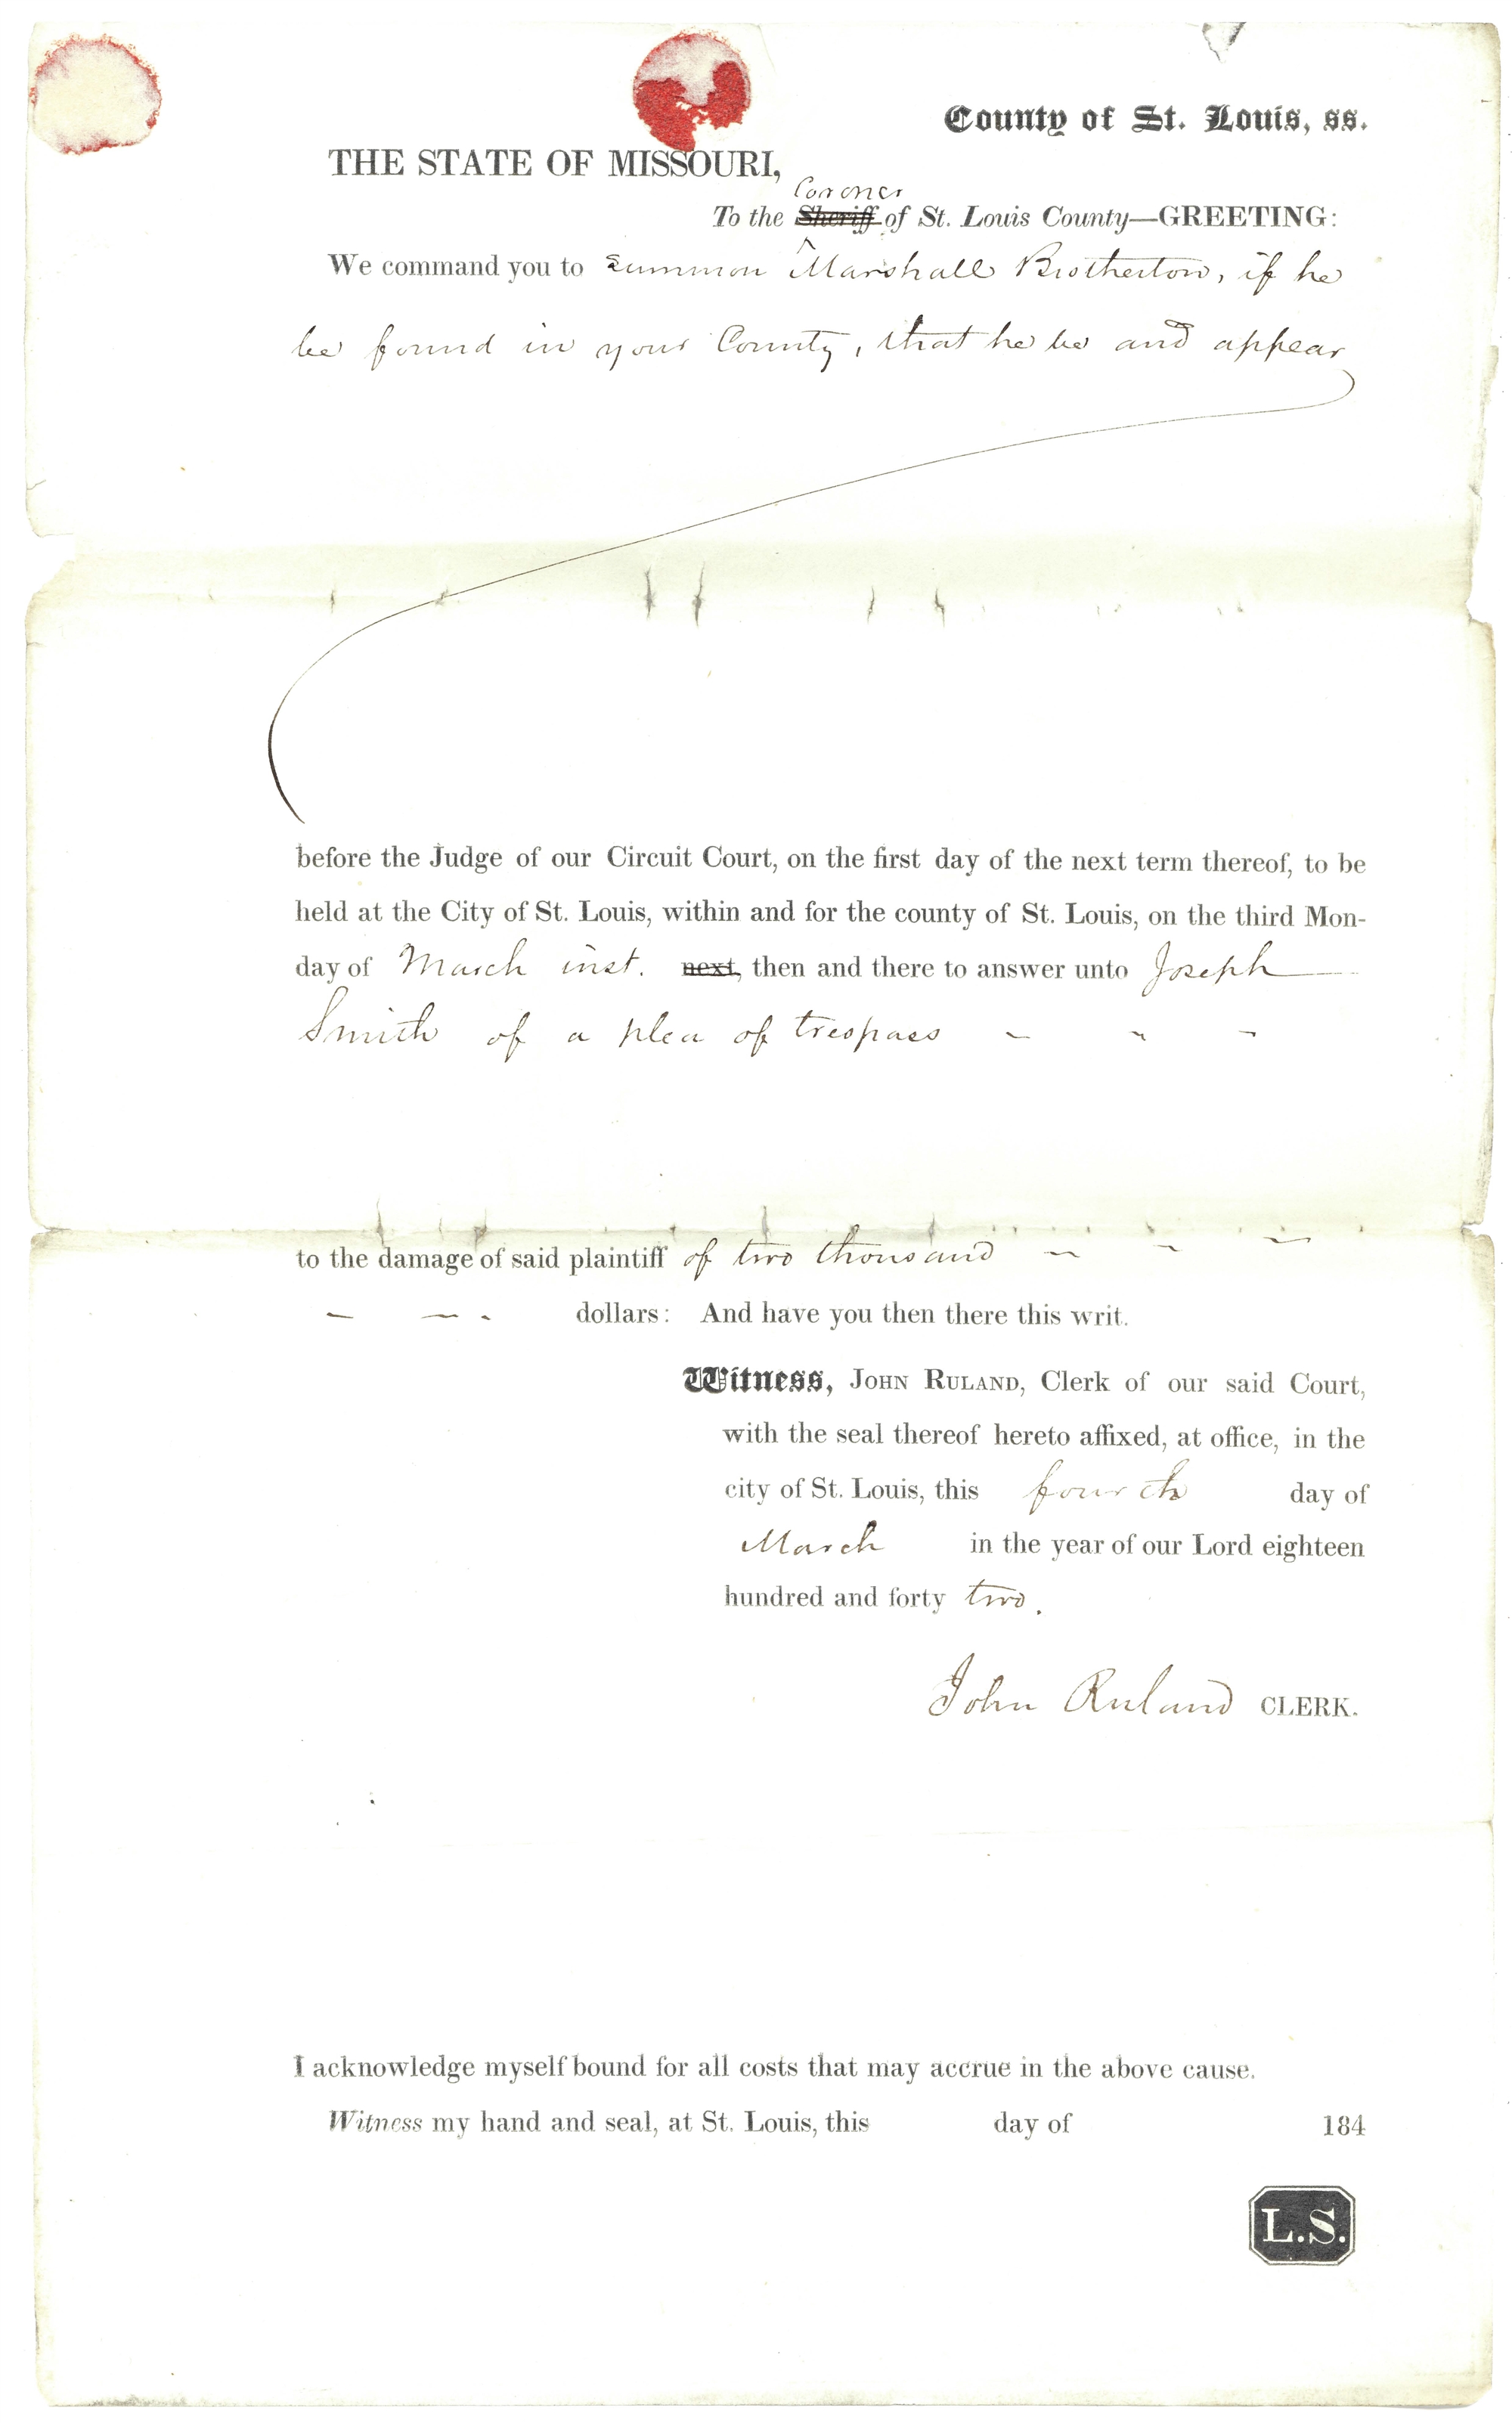 County of St. Louis, ss.
THE STATE OF MISSOURI,
Coroner
To the Sheriff of St. Louis County—GREETING:
We command you to summon Marshall Brotherton, if he
be found in your County, that he be and appear
before the Judge of our Circuit Court, on the first day of the next term thereof, to be
held at the City of St. Louis, within and for the county of St. Louis, on the third Mon-
day of March inst. next, then and there to answer unto Joseph
Smith of a plea of trespass - - -
to the damage of said plaintiff of two thousand - - -
- - - dollars: And have you then there this writ.
Witness, JOHN RULAND, Clerk of our said Court,
with the seal thereof hereto affixed, at office, in the
city of St. Louis, this fourth day of
March in the year of our Lord eighteen
hundred and forty two.
John Ruland CLERK.
I acknowledge myself bound for all costs that may accrue in the above cause.
Witness my hand and seal, at St. Louis, this day of 184
L.S.